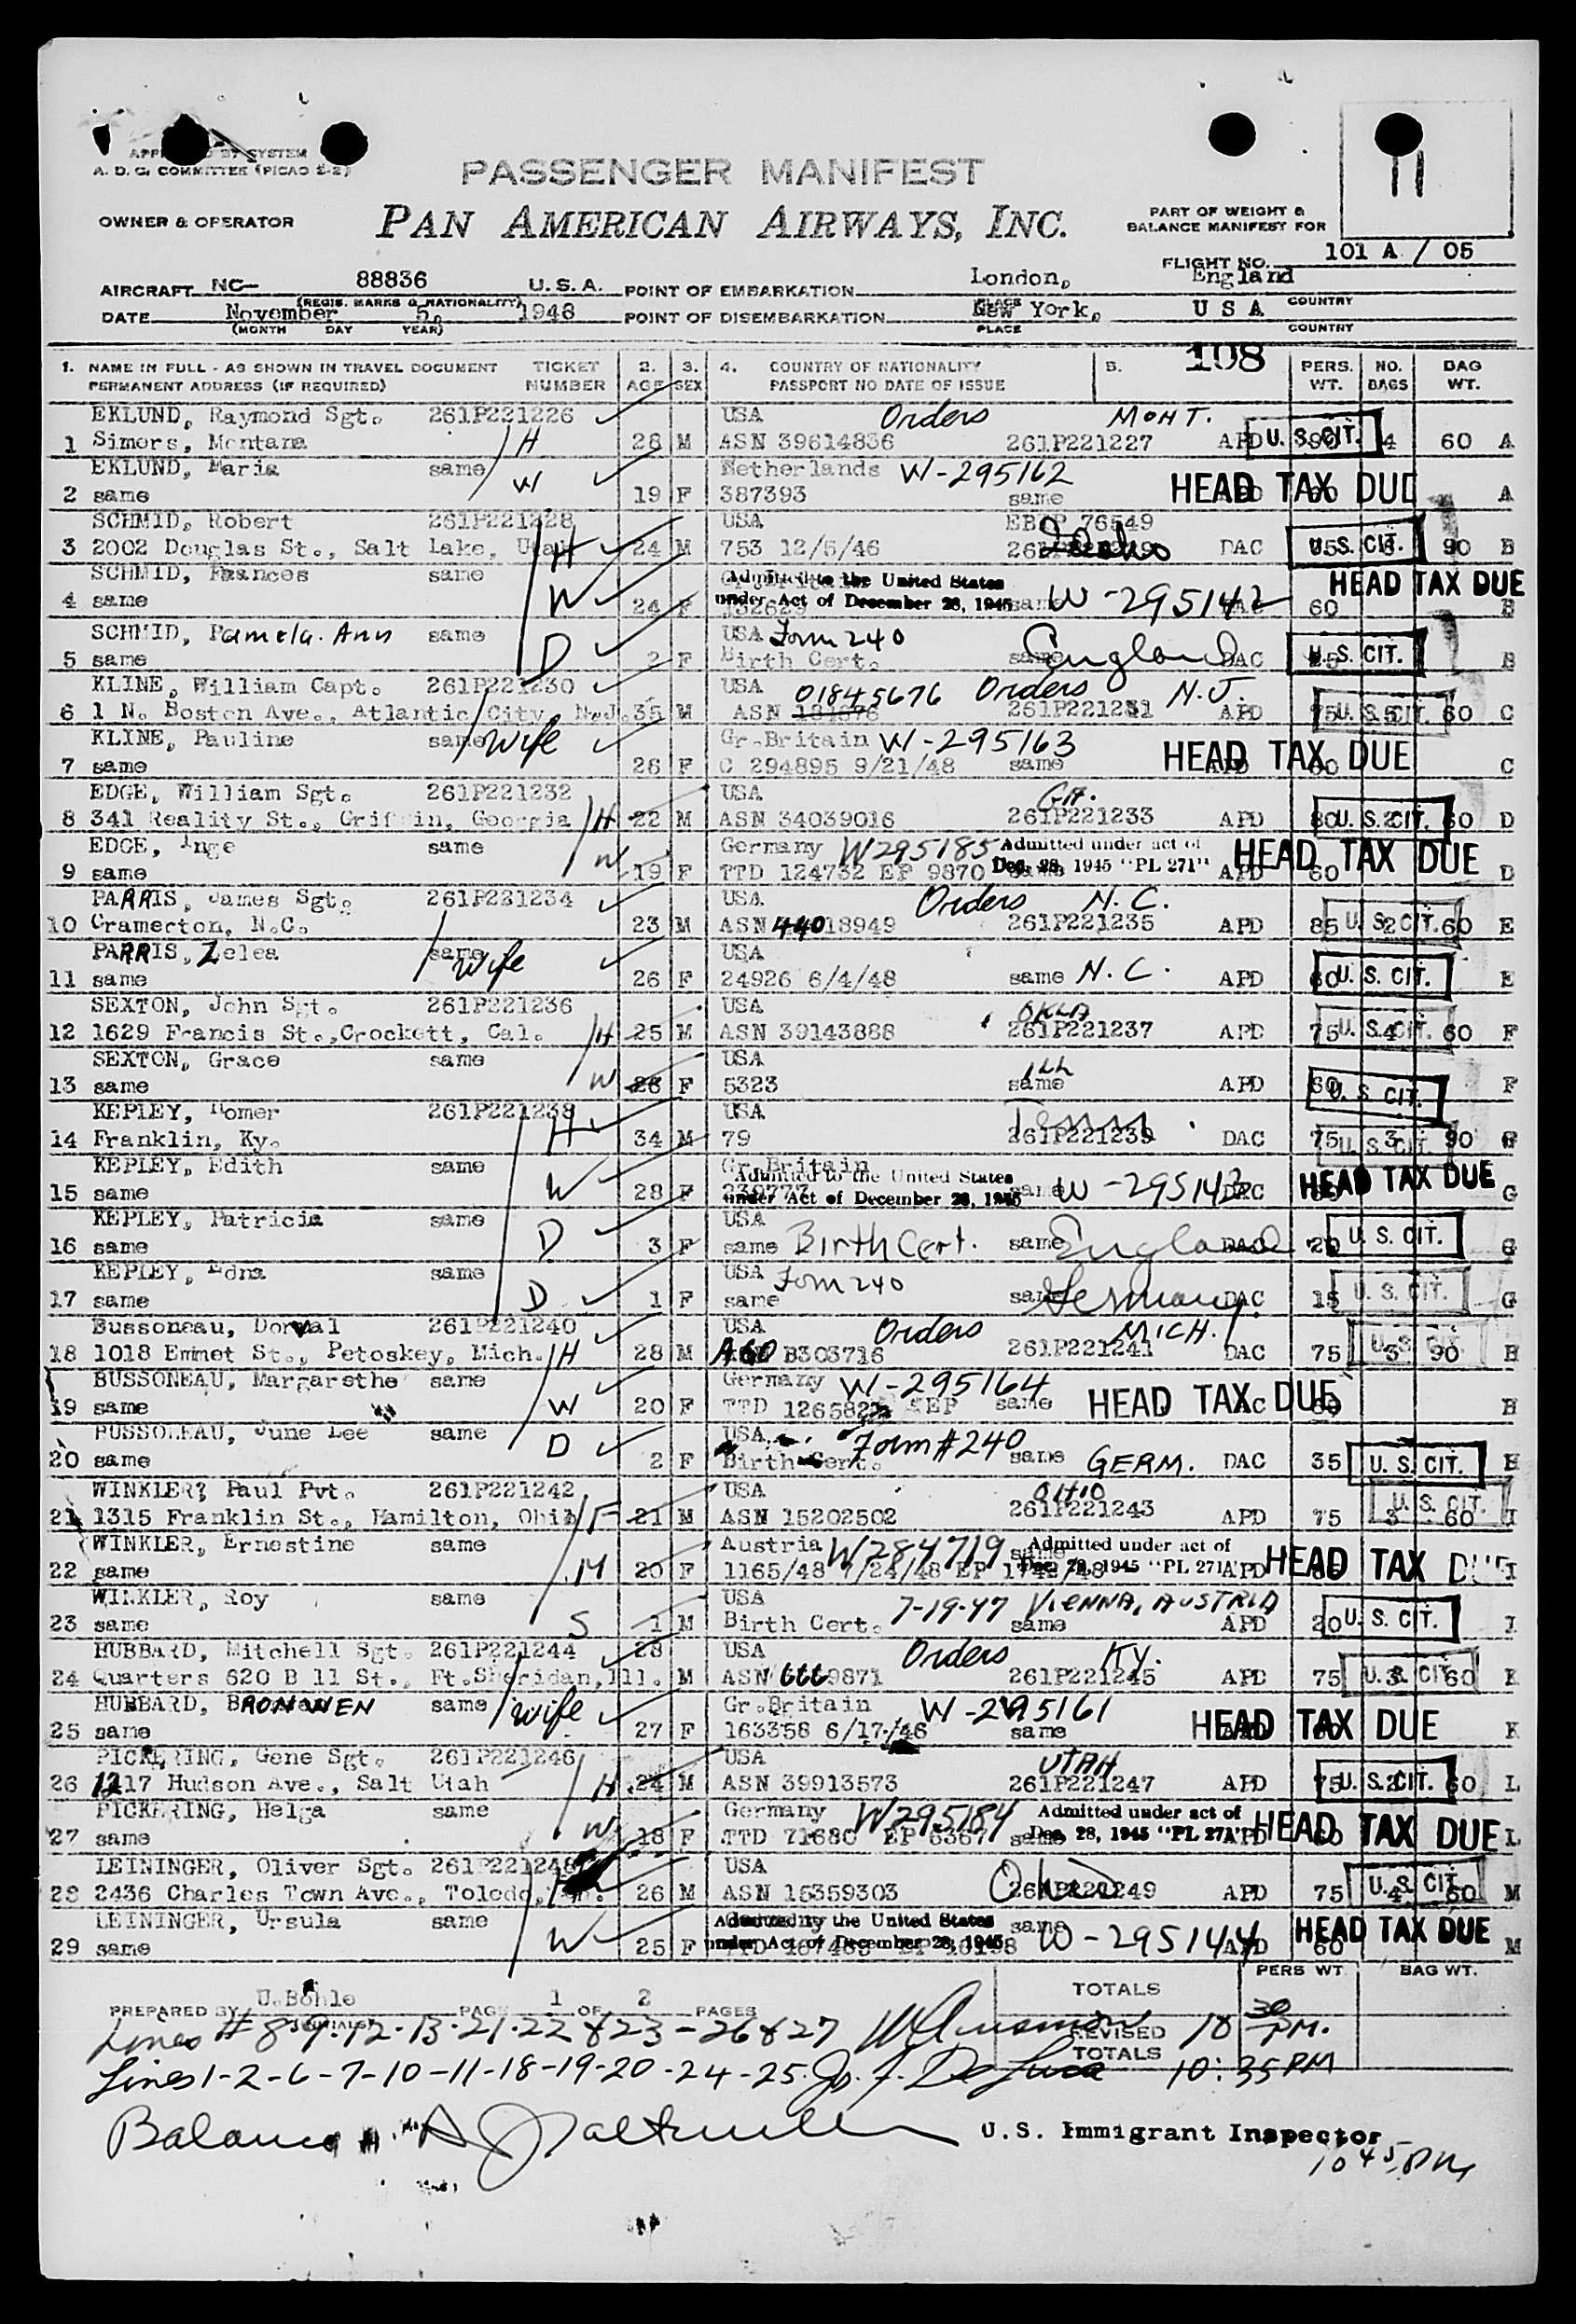 11
APPROVED BY SYSTEM
A. D. C. COMMITTEE (PICAO 2-2)
PASSENGER MANIFEST
OWNER & OPERATOR
PAN AMERICAN AIRWAYS, INC.
PART OF WEIGHT &
BALANCE MANIFEST FOR
FLIGHT NO. 101 A / 05
AIRCRAFT NC- 88836 U.S.A. POINT OF EMBARKATION London, England
(REGIS. MARKS & NATIONALITY) PLACE COUNTRY
DATE November 5, 1948 POINT OF DISEMBARKATION New York, U S A
(MONTH DAY YEAR) PLACE COUNTRY
1. NAME IN FULL - AS SHOWN IN TRAVEL DOCUMENT TICKET 2. 3. 4. COUNTRY OF NATIONALITY 5. 108 PERS. NO. BAG
PERMANENT ADDRESS (IF REQUIRED) NUMBER AGE SEX PASSPORT NO DATE OF ISSUE WT. BAGS WT.
EKLUND, Raymond Sgt. 261P221226 USA Orders MONT.
1 Simors, Montana H 28 M ASN 39614836 261P221227 APD U.S. CIT. 4 60 A
EKLUND, Maria same Netherlands W-295162
2 same W 19 F 387393 same HEAD TAX DUE A
SCHMID, Robert 261P221228 USA 76549
3 2002 Douglas St., Salt Lake, Utah H 24 M 753 12/5/46 Idaho DAC U.S. CIT. 90 B
SCHMID, Frances same Admitted to the United States HEAD TAX DUE
4 same W 24 F under Act of December 28, 1945 same W-295142 60 B
SCHMID, Pamela. Ann same USA Form 240
5 same D 2 F Birth Cert. same England DAC U.S. CIT. B
KLINE, William Capt. 261P221230 USA 01845676 Orders N.J.
6 1 N. Boston Ave., Atlantic City, N.J. 35 M ASN 261P221231 APD 75 U.S. CIT. 60 C
KLINE, Pauline same wife Gr.Britain W-295163
7 same 26 F C 294895 9/21/48 same HEAD TAX DUE C
EDGE, William Sgt. 261P221232 USA GA.
8 341 Reality St., Griffin, Georgia H 22 M ASN 34039016 261P221233 APD 80 U.S. CIT. 60 D
EDGE, Inge same Germany W295185 Admitted under act of
9 same W 19 F TTD 124732 EP 9870 Dec. 28, 1945 "PL 271" APD 60 HEAD TAX DUE D
PARRIS, James Sgt. 261P221234 USA Orders N.C.
10 Cramerton, N.C. 23 M ASN 44018949 261P221235 APD 85 U.S. CIT. 60 E
PARRIS, Zelea same wife USA
11 same 26 F 24926 6/4/48 same N.C. APD 60 U.S. CIT. E
SEXTON, John Sgt. 261P221236 USA OKLA
12 1629 Francis St.,Crockett, Cal. H 25 M ASN 39143888 261P221237 APD 75 U.S. CIT. 60 F
SEXTON, Grace same USA Ill
13 same W 26 F 5323 same APD 60 U.S. CIT. F
KEPLEY, Homer 261P221238 USA Tenn.
14 Franklin, Ky. H 34 M 79 261P221239 DAC 75 U.S. CIT. 90 G
KEPLEY, Edith same Gr.Britain Admitted to the United States
15 same W 28 F under Act of December 28, 1945 same W-295143 DAC HEAD TAX DUE G
KEPLEY, Patricia same USA
16 same D 3 F same Birth Cert. same England DAC 20 U.S. CIT. G
KEPLEY, Edna same USA Form 240
17 same D 1 F same same Germany. DAC 15 U.S. CIT. G
Bussoneau, Dorval 261P221240 USA Orders MICH.
18 1018 Emmet St., Petoskey, Mich. H 28 M AGO B303716 261P221241 DAC 75 U.S. CIT. 3 90 H
BUSSONEAU, Margarethe same Germany W-295164
19 same W 20 F TTD same HEAD TAX DUE H
BUSSONEAU, June Lee same USA Form #240
20 same D 2 F Birth Cert. same GERM. DAC 35 U.S. CIT. H
WINKLER, Paul Pvt. 261P221242 USA OHIO
21 1315 Franklin St., Hamilton, Ohio F 21 M ASN 15202502 261P221243 APD 75 U.S. CIT. 3 60 I
WINKLER, Ernestine same Austria W284719 same Admitted under act of
22 same M 20 F 1165/48 7/24/48 EP Dec. 28, 1945 "PL 271" APD HEAD TAX DUE I
WINKLER, Roy same USA 7-19-47 VIENNA, AUSTRIA
23 same S 1 M Birth Cert. same APD 20 U.S. CIT. I
HUBBARD, Mitchell Sgt. 261P221244 28 USA Orders KY.
24 Quarters 620 B 11 St., Ft.Sheridan,Ill. M ASN 6669871 261P221245 APD 75 U.S. CIT. 3 60 K
HUBBARD, BRONWEN same wife Gr.Britain W-295161
25 same 27 F 163358 6/17/46 same HEAD TAX DUE K
PICKERING, Gene Sgt. 261P221246 USA UTAH
26 1217 Hudson Ave., Salt Utah H 24 M ASN 39913573 261P221247 APD 75 U.S. CIT. 60 L
PICKERING, Helga same Germany W295184 Admitted under act of
27 same W 18 F TTD 71680 EP 6367 same Dec. 28, 1945 "PL 271" APD 60 HEAD TAX DUE L
LEININGER, Oliver Sgt. 261P221248 USA
28 2436 Charles Town Ave., Toledo, H 26 M ASN 15359303 Ohio 261P221249 APD 75 U.S. CIT. 4 60 M
LEININGER, Ursula same Admitted to the United States same
29 same W 25 F under Act of December 28, 1945 W-295144 APD 60 HEAD TAX DUE M
PREPARED BY U.Bohle PAGE 1 OF 2 PAGES TOTALS PERS WT. BAG WT.
(INITIALS)
Lines # 8-9-12-13-21-22 & 23-26 & 27 REVISED TOTALS 10 30 PM.
Lines 1-2-6-7-10-11-18-19-20-24-25. Jos. J. De Luca 10:35 PM
Balance U.S. Immigrant Inspector
10 45 PM